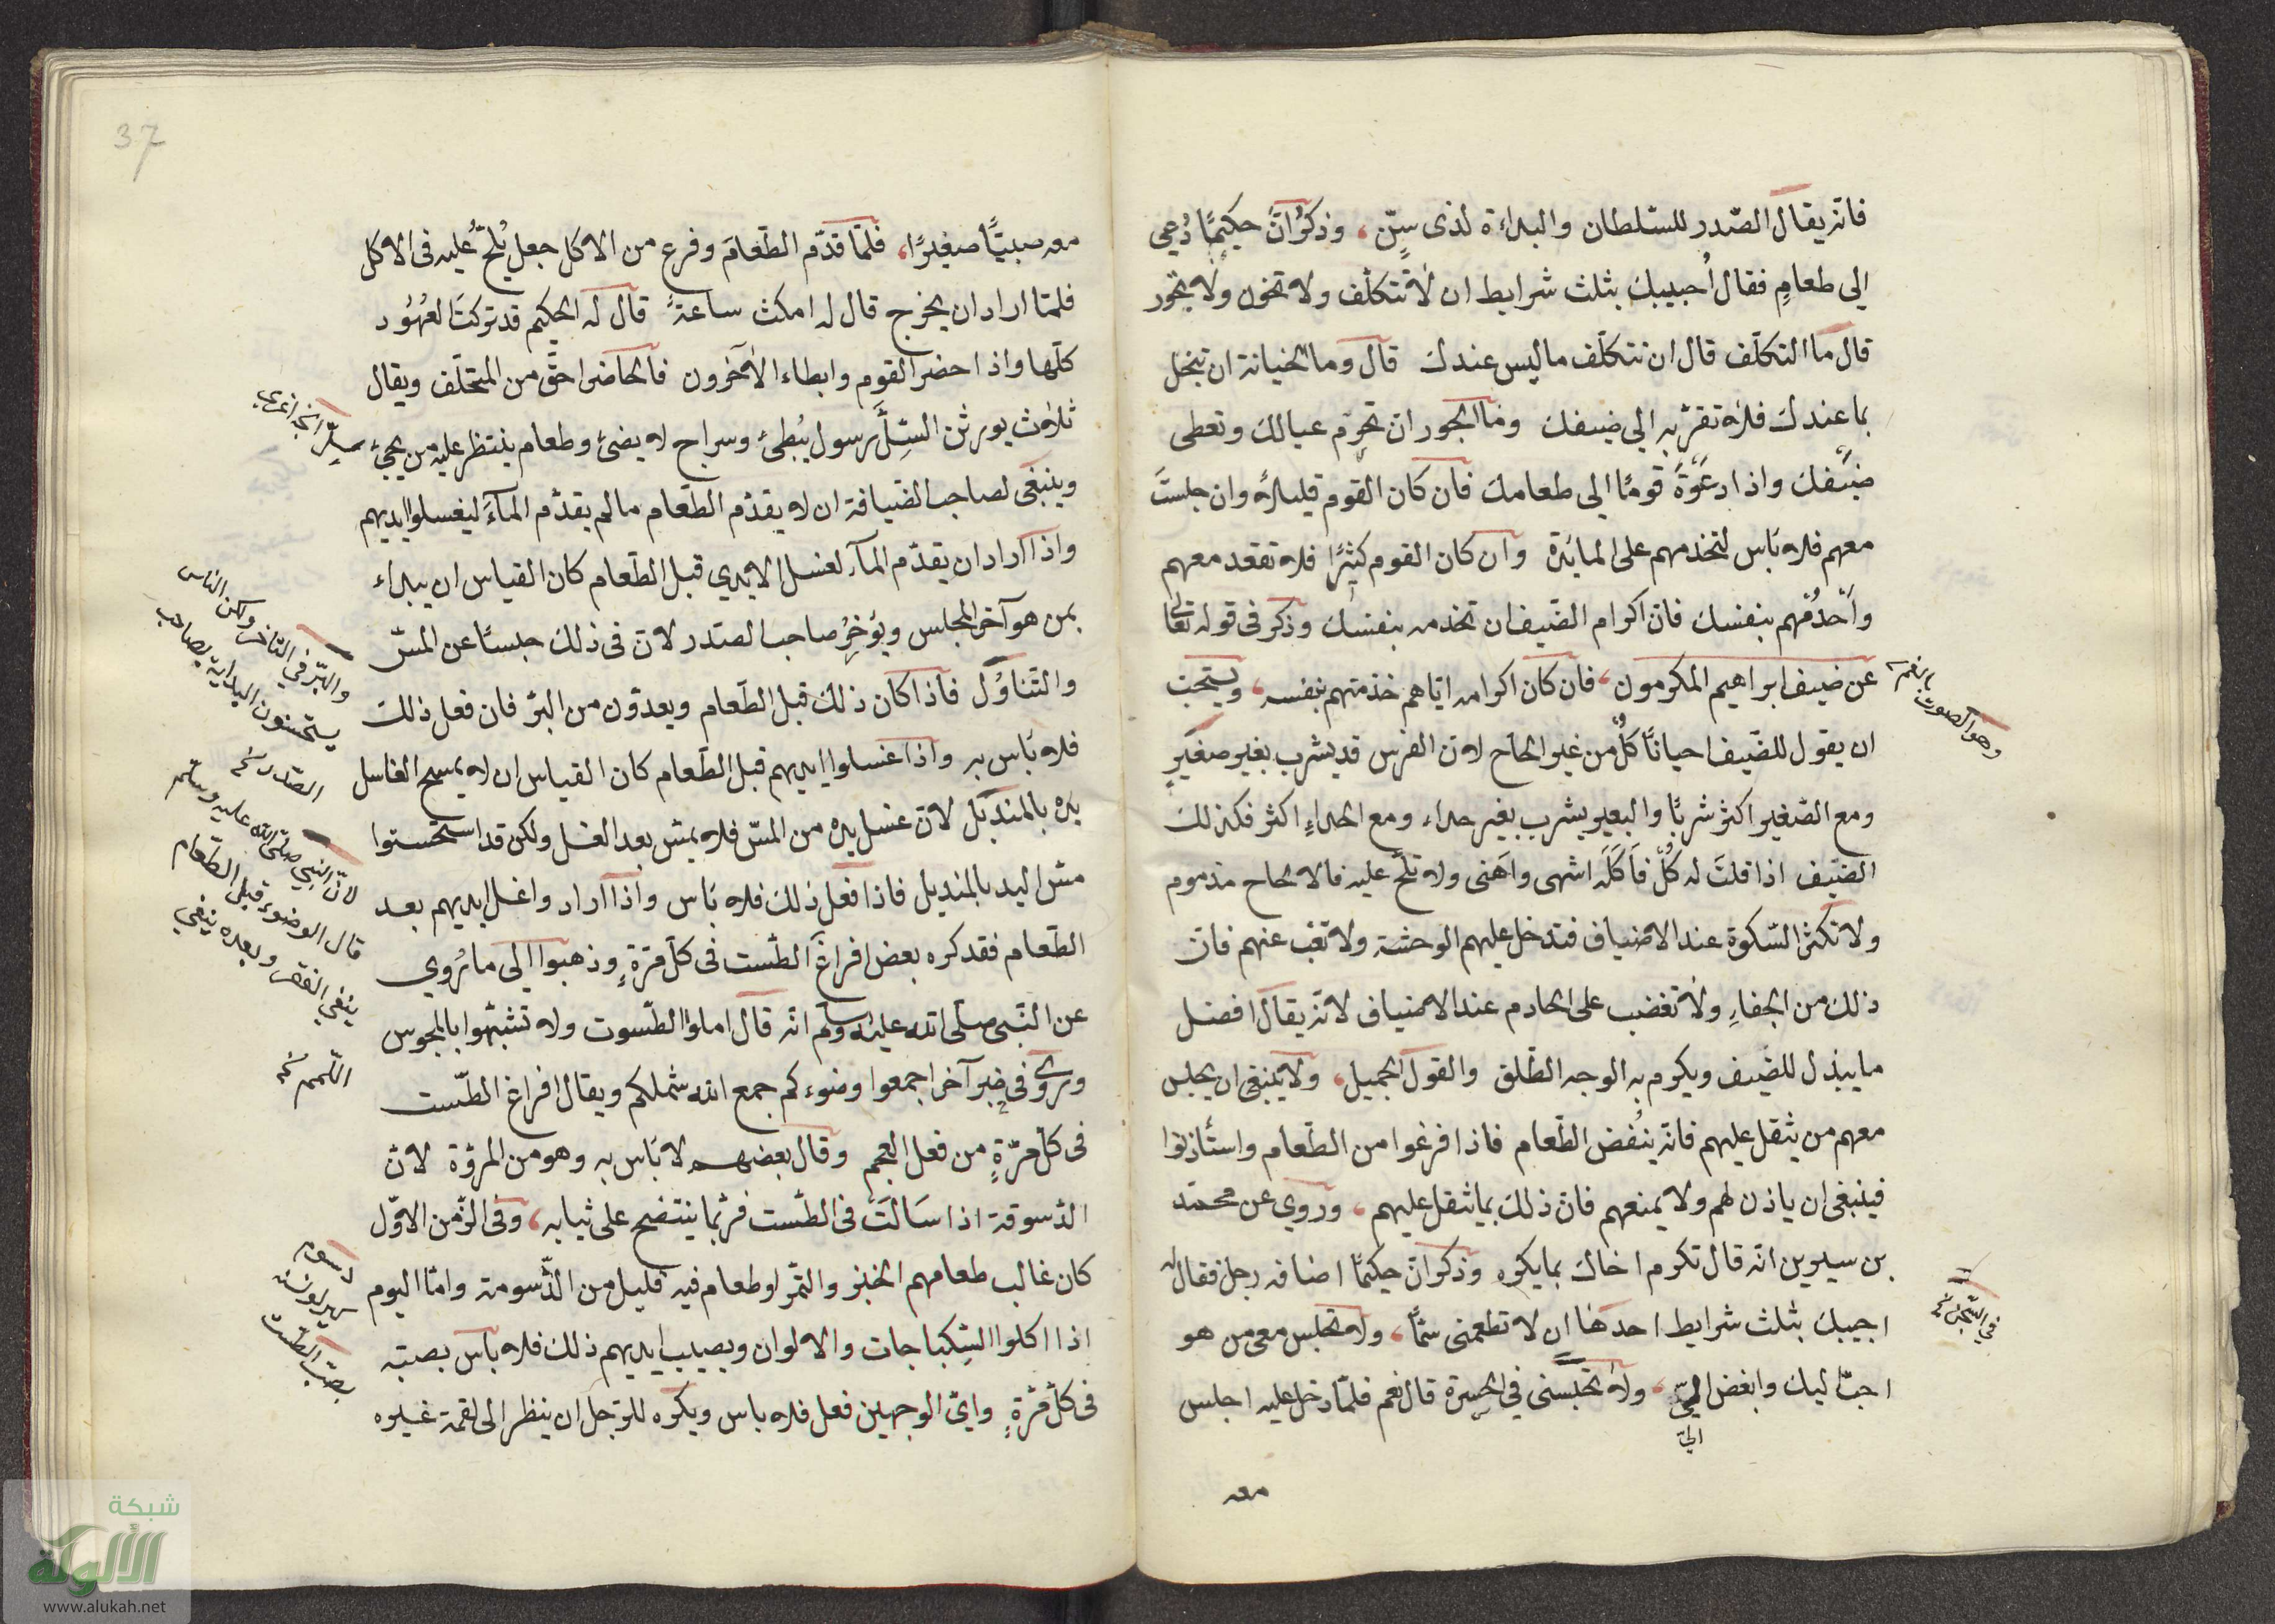 فانّه يقال الصّدر للسّلطان والبداءة لذى سنّ، وذكر انّ حكيمًا دُعي
الى طعامٍ فقال اُجيبك بثلث شرايط ان لا تتكلّف ولا تخون ولا تجور
قال ما التكلّف قال ان تتكلّف ما ليس عندك قال وما الخيانة ان تبخل
بما عندك فلا تقرّبه الى ضيفك وما الجور ان تحرّم عيالك وتعطى
ضيفك واذا دعوة قومًا الى طعامك فان كان القوم قليلاً وان جلستَ
معهم فلا بأس لتخدمهم على المائدة وان كان القوم كثيرًا فلا تقعد معهم
وأخدُمْهم بنفسك فانّ اكرام الضّيف ان تخدمه بنفسك وذكر فى قوله تعالى
عن ضيف ابراهيم المكرمون، فان كان اكرامه ايّاهم خدمتهم بنفسه، ويستحبّ
ان يقول للضّيف احيانًا كُلْ من غير الحاح لانّ الفرس قد يشرب بغير صفيرٍ
ومع الصّفير اكثر شربًا والبعير يشرب بغير حداء ومع الحداءِ اكثر فكذلك
الضّيف اذا قلتَ له كُلْ فأكَلَه اشهى واَهنى ولا تلحّ عليه فالالحاح مذموم
ولا تكثر السّكوة عند الاضياف فتدخل عليهم الوحشة ولا تغب عنهم فانّ
ذلك من الجفاءِ ولا تغضب على الخادم عند الاضياف لانّه يقال افضل
ما يبذل للضّيف ويكرم به الوجه الطّلق والقول الجميل، ولا ينبغى ان يجلس
معهم من يثقل عليهم فانّه ينغض الطّعام فاذا فرغوا من الطّعام واستأذنوا
فينبغى ان ياذن لهم ولا يمنعهم فانّ ذلك بما يثقل عليهم، وروي عن محمّد
بن سيرين انّه قال تكرم اخاك بما يكره وذكر انّ حكيمًا اضافه رجل فقال له
اجيبك بثلث شرايط احدها ان لا تطعمنى سمًّا، ولا تجلس معى من هو
احبّ اليك وابغض اليّ، ولا تحبسنى في الحسرة قال نعم فلمّا دخل عليه اجلس
اليّ
معه
بالنغمه
وهو الصوت
في السّجن نخ
37
معه صبيًّا صغيرًا، فلمّا قدّم الطّعامَ وفرغ من الاكل جعل يُلحّ عليه فى الاكل
فلمّا اراد ان يخرج قال له امكث ساعةً قال له الحكيم قد تركتَ العُهُود
كلّها واذا حضر القوم وابطاء الاخرون فالحاضر احقّ من المتخلّف ويقال
ثلاث يورثن السّلّ رسول يُبْطئ وسراج لا يضئ وطعام ينتظر عليه من يجئ
وينبغى لصاحب الضّيافة ان لا يقدّم الطّعام ما لم يقدّم المآءَ ليغسلوا ايديهم
واذا اراد ان يقدّم المآء لغسل الايدي قبل الطّعام كان القياس ان يبداء
بمن هو آخر المجلس ويؤخِّر صاحب الصّدر لانّ فى ذلك حبسًا عن المسّ
والتّناوُل فاذا كان ذلك قبل الطّعام ويعدّون من البرّ فان فعل ذلك
فلا بأس به واذا غسلوا ايديهم قبل الطّعام كان القياس ان لا يمسح الغاسل
يده بالمنديل لانّ غسل يده من المسّ فلا يمسّ بعد الغسل ولكن قد استحسنوا
مسّ اليد بالمنديل فاذا فعل ذلك فلا بأس واذا اراد واغسل ايديهم بعد
الطّعام فقد كره بعض افراغ الطّست فى كلّ مرّةٍ وذهبوا الى ما رُوي
عن النّبى صلّى الله عليه وسلّم انّه قال املوا الطّسوت ولا تشبّهوا بالمجوس
وروى فى خبر آخر اجمعوا وضوءكم جمع الله شملكم ويقال افراغ الطّست
فى كلّ مرّةٍ من فعل العجم وقال بعضهم لا بأس به وهو من المروّة لانّ
الدّسوقة اذا سَالَتَ فى الطّست فربّما ينتضح على ثيابه، وفى الزّمن الاوّل
كان غالب طعامهم الخبز والتّمر او طعام فيه قليل من الدّسومة وامّا اليوم
اذا اكلوا السّكباجات والالوان ويصيب ايديهم ذلك فلا بأس بصبّه
فى كلّ مرّةٍ واىّ الوجهين فعل فلا بأس ويكره للرّجل ان ينظر الى لقمة غيره
والبرّ في التأخير ولكن الناس
يستحسنون البداية بصاحب
الصّدر نخ
لانّ النبي صلّى الله عليه وسلم
قال الوضوء قبل الطّعام
ينفي الفقر وبعده ينفي
اللّمم نخ
بصبّ الطّست
شبكة
الألوكة
www.alukah.net